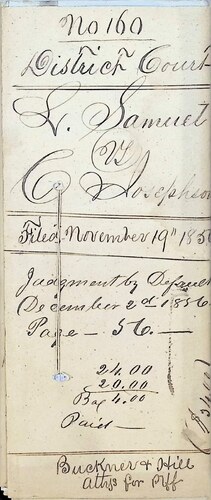 No 160
District Court
L. Samuel
vs
C Josephson
Filed November 19th 1856
Judgment by Default
December 2d 1856
Page — 56 —
24.00
20.00
Bal 4.00
Paid —
Buckner & Hill
attys for Plff